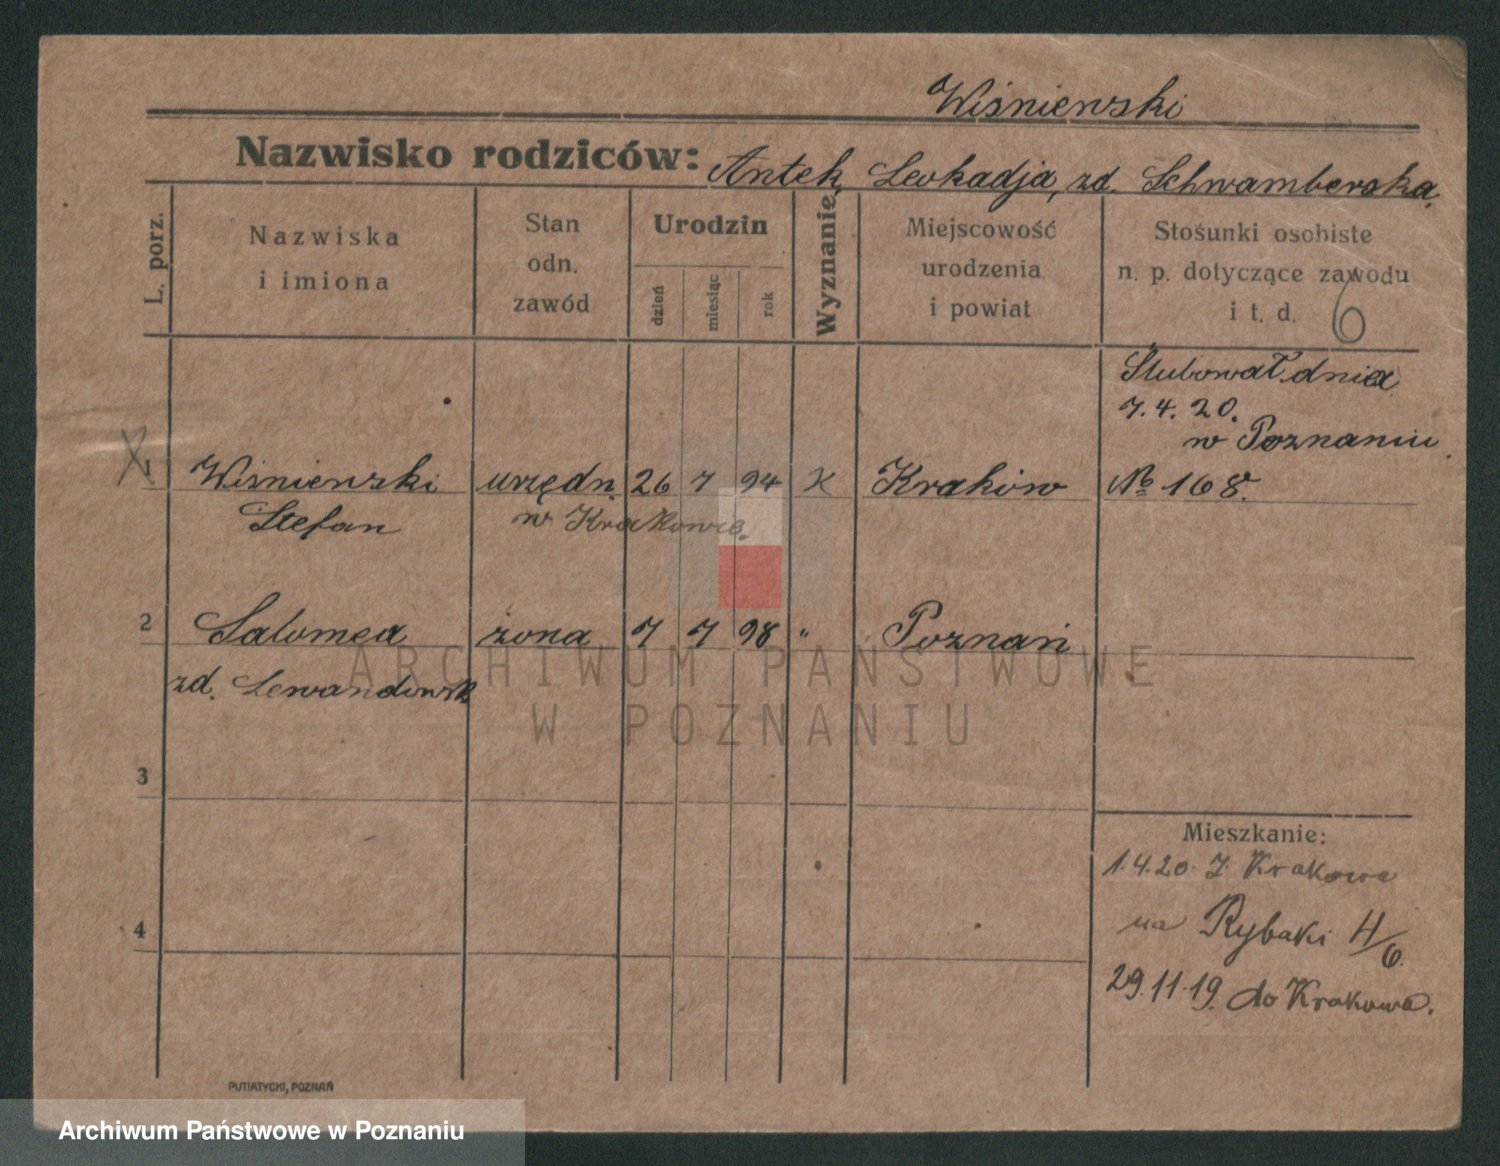 Wiśniewski
Nazwisko rodziców: Antek, Leokadja, zd. Schwamberska.
L. porz.
Nazwiska
i imiona
Stan
odn.
zawód
Urodzin
dzień
miesiąc
rok
Wyznanie
Miejscowość
urodzenia
i powiat
Stosunki osobiste
n. p. dotyczące zawodu
i t. d.
6
Ślubował dnia
7. 4. 20.
w Poznaniu.
X
1 Wiśniewski urzędn. 26 7 94 K Kraków № 168.
Stefan w Krakowie.
2 Salomea żona 7 7 98 " Poznań
zd. Lewandowsk
3
4
Mieszkanie:
1.4.20. Z Krakowa
na Rybaki 4/6.
29.11.19. do Krakowa.
PUTIATYCKI, POZNAŃ
ARCHIWUM PAŃSTWOWE
W POZNANIU
Archiwum Państwowe w Poznaniu